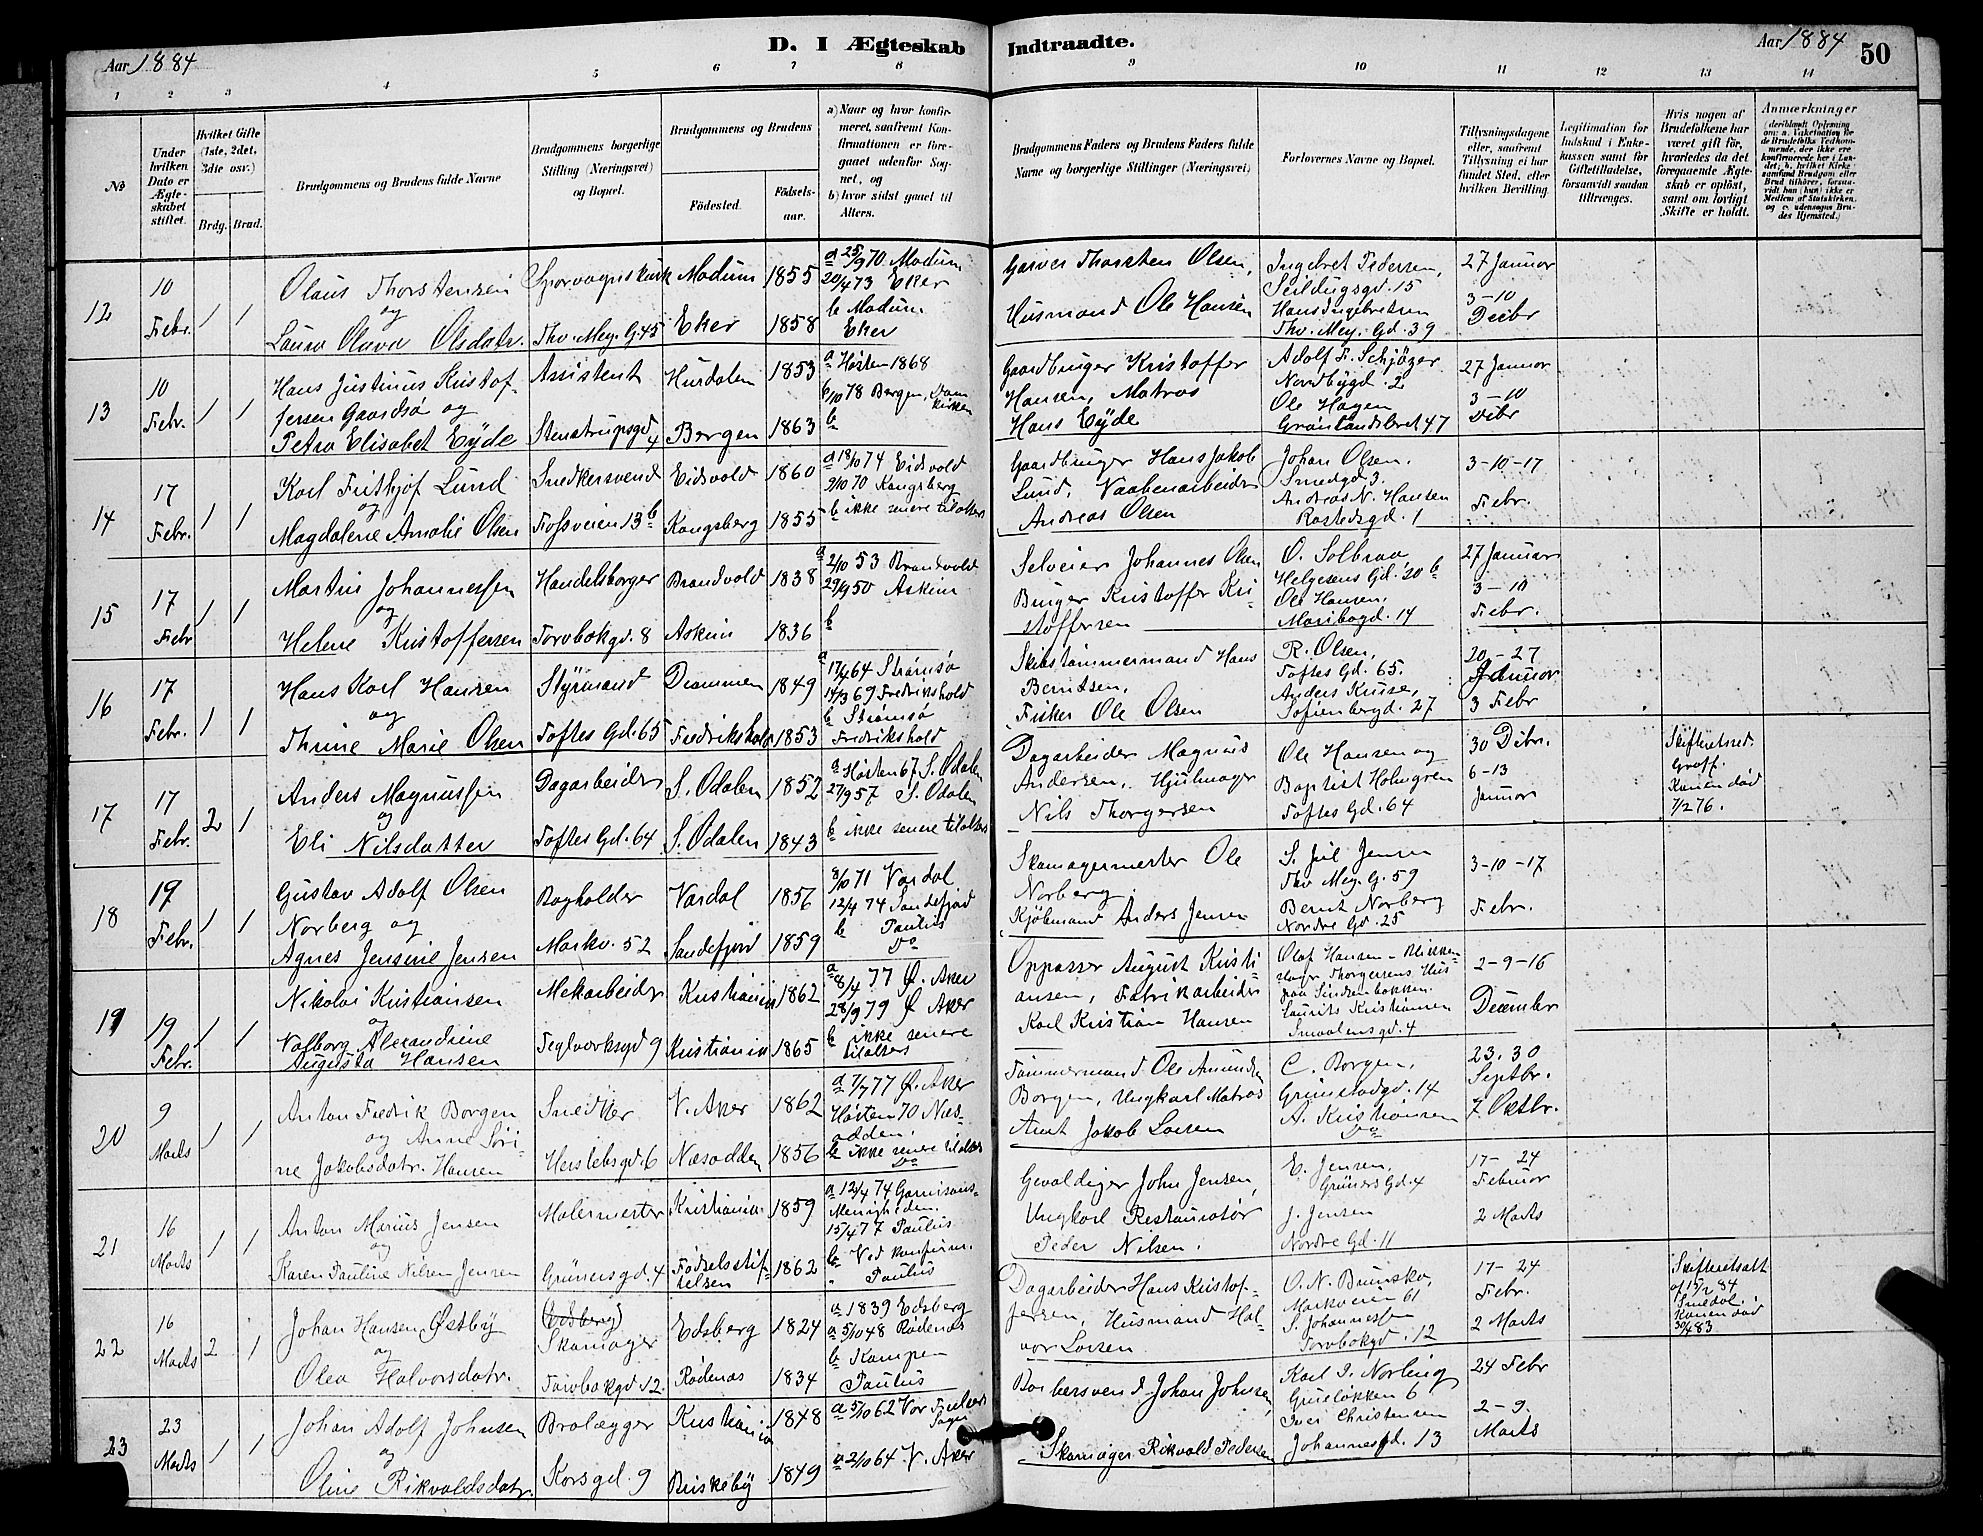 Aar 1884
D. I Ægteskab
Indtraadte.
Aar 1884
50
1 2 3 4 5 6 7 8 9 10 11 12 13 14
No
Under hvilken Dato er Ægteskabet stiftet.
Hvilket Gifte (1ste, 2det, 3die osv.)
Brdg. Brud.
Brudgommens og Brudens fulde Navne
Brudgommens borgerlige Stilling (Næringsvei) og Bopæl.
Brudgommens og Brudens
Födested.
Födselsaar.
a) Naar og hvor konfirmeret, saafremt Konfirmationen er foregaaet udenfor Sognet, og
b) hvor sidst gaaet til Alters.
Brudgommens Faders og Brudens Faders fulde Navne og borgerlige Stillinger (Næringsvei)
Forlovernes Navne og Bopæl.
Tillysningsdagene eller, saafremt Tillysning ei har fundet Sted, efter hvilken Bevilling.
Legitimation for Indskud i Enkekassen samt for Giftetilladelse, forsaavidt saadan tiltrænges.
Hvis nogen af Brudefolkene har været gift för, hvorledes da det foregaaende Ægteskab er oplöst, samt om lovligt Skifte er holdt.
Anmærkninger
12
10 Febr.
1 1
Olaus Thorstensen
og
Laura Olava Olsdatr.
Sporvognskusk
Thv. Mey. G. 45
Modum 1855
Eker 1858
a 25/9 70 Modum
20/4 73 Eker
b Modum
Eker
Garver Thorsten Olsen,
Husmand Ole Hansen
Ingebret Pedersen,
Seildugsgd. 15
Hans Ingebretsen
Thv. Mey. Gd. 39
27 Januar
3-10
13
10 Febr.
1 1
Hans Justinus Kristof-
fersen Gaardsø og
Petra Elisabet Eÿde
Assistent
Stenstrupsgd 4
Hurdalen 1853
Bergen 1863
a Høsten 1868
6/10 78 Bergen, Domkirken
b
Gaardbruger Kristoffer
Hansen, Matros
Hans Eÿde
Adolf F. Schjøzer
Nordbÿgd. 2
Ole Hagen
Grønlandsleret 47
27 Januar
3-10
14
17 Febr.
1 1
Karl Frithjof Lund
og
Magdalene Amalie Olsen
Snedkersvend
Fossveien 13 b
Eidsvold 1860
Kongsberg 1855
a 18/10 74 Eidsvold
2/10 70 Kongsberg
b ikke senere tilalters
Gaardbruger Hans Jakob
Lund, Vaabenarbeider
Andreas Olsen
Johan Olsen.
Smedgd 3.
Andreas N. Hansen
Rostedsgd. 1
3-10-17
Febr.
15
17 Febr
1 1
Martin Johannessen
og
Helene Kristoffersen
Handelsborger
Torvbakgd. 8
Brandvold 1838
Askim 1836
a 2/10 53 Brandvold
29/9 50 Askim
b
Selveier Johannes Olsen
Bruger Kristoffer Kri-
stoffersen
O. Solbraa
Helgesens Gd. 20 b
Ole Hansen,
Maribogd. 14
27 Januar
3-10
Febr.
16
17 Febr.
1 1
Hans Karl Hansen
og
Thrine Marie Olsen
Stÿrmand
Toftes Gd. 65
Drammen 1849
Fredrikshald 1853
a 17/4 64 Strømsø
14/3 69 Fredrikshald
b Strømsø
Fredrikshald
Skibstømmermand Hans
Berntsen,
Fisker Ole Olsen
R. Olsen,
Toftes Gd. 65.
Anders Kruse,
Sofienbergd. 27
20-27
Januar
3 Febr
17
17 Febr.
2 1
Anders Magnussen
og
Eli Nilsdatter
Dagarbeider
Toftes Gd. 64
S. Odalen 1852
S. Odalen 1843
a Høsten 67 S. Odalen
27/9 57 S. Odalen
b ikke senere tilalters
Dagarbeider Magnus
Andersen, Hjulmager
Nils Thorgersen
Ole Hansen og
Baptist Holmgren
Toftes Gd. 64
30 Dcbr.
6-13
Januar
Skifteretsed.
Graff.
Konen død
7/2 76.
18
19 Febr.
1 1
Gustav Adolf Olsen
Norberg og
Agnes Jensine Jensen
Bogholder
Markv. 52
Vardal 1856
Sandefjord 1859
8/10 71 Vardal
12/4 74 Sandefjord
b Paulus
Do
Skomagermester Ole
Norberg
Kjøbmand Anders Jensen
S. Juil Jensen
Thv Mey. G. 59
Bernt Norberg
Nordre Gd. 25
3-10-17
Febr.
19
19 Febr.
1 1
Nikolai Kristiansen
og
Valborg Alexandrine
Augusta Hansen
Mekarbeider
Teglverksgd 9
Kristiania 1862
Kristiania 1865
a 8/4 77 Ø. Aker
28/9 79 Ø Aker
b ikke senere
tilalters
Oppasser August Kristi-
ansen, Fabrikarbeider
Karl Kristian Hansen
Olaf Hansen - Blikken-
slager Thorgersens Hus
paa Sindsenløkken.
Laurits Kristiansen
Smaalensgd. 4
2-9-16
December
20
9 Marts
1 1
Anton Fredrik Borgen
og Anne Søri-
ne Jakobsdatr. Hansen
Snedker
Herslebsgd. 6
V. Aker 1862
Næsodden 1856
a 7/7 77 Ø. Aker
Høsten 70 Næs-
odden.
b ikke senere tilalters
Do
Tømmermand Ole Amundsen
Borgen, Ungkarl Matros
Jakob Larsen
C. Borgen,
Grimstadgd. 14
A. Kristiansen
Do
23. 30
Septbr.
7 Oktbr.
21
16 Marts
1 1
Anton Marius Jensen
og
Karen Pauline Nilsen Jensen
Malermester
Grünersgd. 4
Kristiania 1859
Fødselsstif-
telsen 1862
a 12/4 74 Garnisons-
Menigheden.
15/4 77 Paulus
b Ved konfirm.
" Paulus
Gevaldiger John Jensen,
Ungkarl Restauratør
Peder Nilsen.
E. Jensen,
Grüners Gd. 4
J. Jensen
Nordre Gd. 11
17-24
Februar
2 Marts
22
16 Marts
2 1
Johan Hansen Østbÿ
og
Olea Halvorsdatr.
(Edsberg)
Skomager
Torvbakgd. 12.
Edsberg 1824
Rødenæs 1834
a 1839 Edsberg
a 5/10 48 Rødenæs
b Kampen
Paulus
Dagarbeider Hans Kristof-
fersen, Husmand Hal-
vor Larsen
O. N. Brunsko,
Markveien 61
S. Johannessen
Torvbakgd. 12
17-24
Febr.
2 Marts
Skifteretsatt
af 15/2 84
Smedal.
Konen død
30/4 83.
23
23 Marts
1 1
Johan Adolf Johnsen
og
Oline Rikvaldsdatr.
Brolægger
Korsgd. 9
Kristiania 1848
Briskebÿ 1849
a 5/10 62 Vor Frelsers
Sogn
a 2/10 64 V. Aker
Barbersvend Johan Johnsen,
Skomager Rikvald Pedersen
Karl I. Norling
Grüneløkken 6
Iver Christensen
Johannesgd. 13
24 Febr
2-9.
Marts